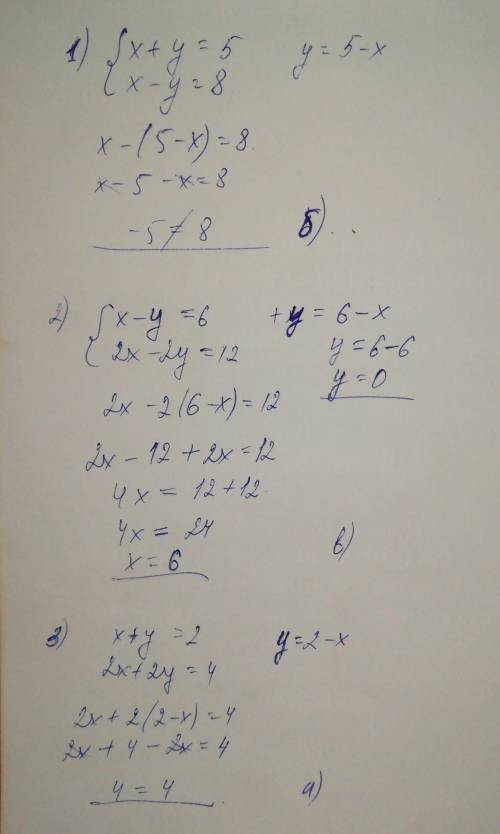 1) { x + y = 5    y = 5 - x
{ x - y = 8
x - (5 - x) = 8
x - 5 - x = 8
-5 ≠ 8    б) . .
2) { x - y = 6    + y = 6 - x
{ 2x - 2y = 12    y = 6 - 6
y = 0
2x - 2(6 - x) = 12
2x - 12 + 2x = 12
4x = 12 + 12
4x = 24
x = 6    в)
3) x + y = 2    y = 2 - x
2x + 2y = 4
2x + 2(2 - x) = 4
2x + 4 - 2x = 4
4 = 4    а)